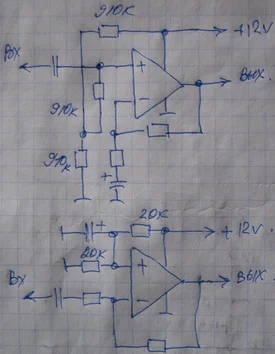 910K
+12V
Вх
+
Вых
910K
-
910K
+
+
20K
+12V
20K
+
Вых
Вх
-